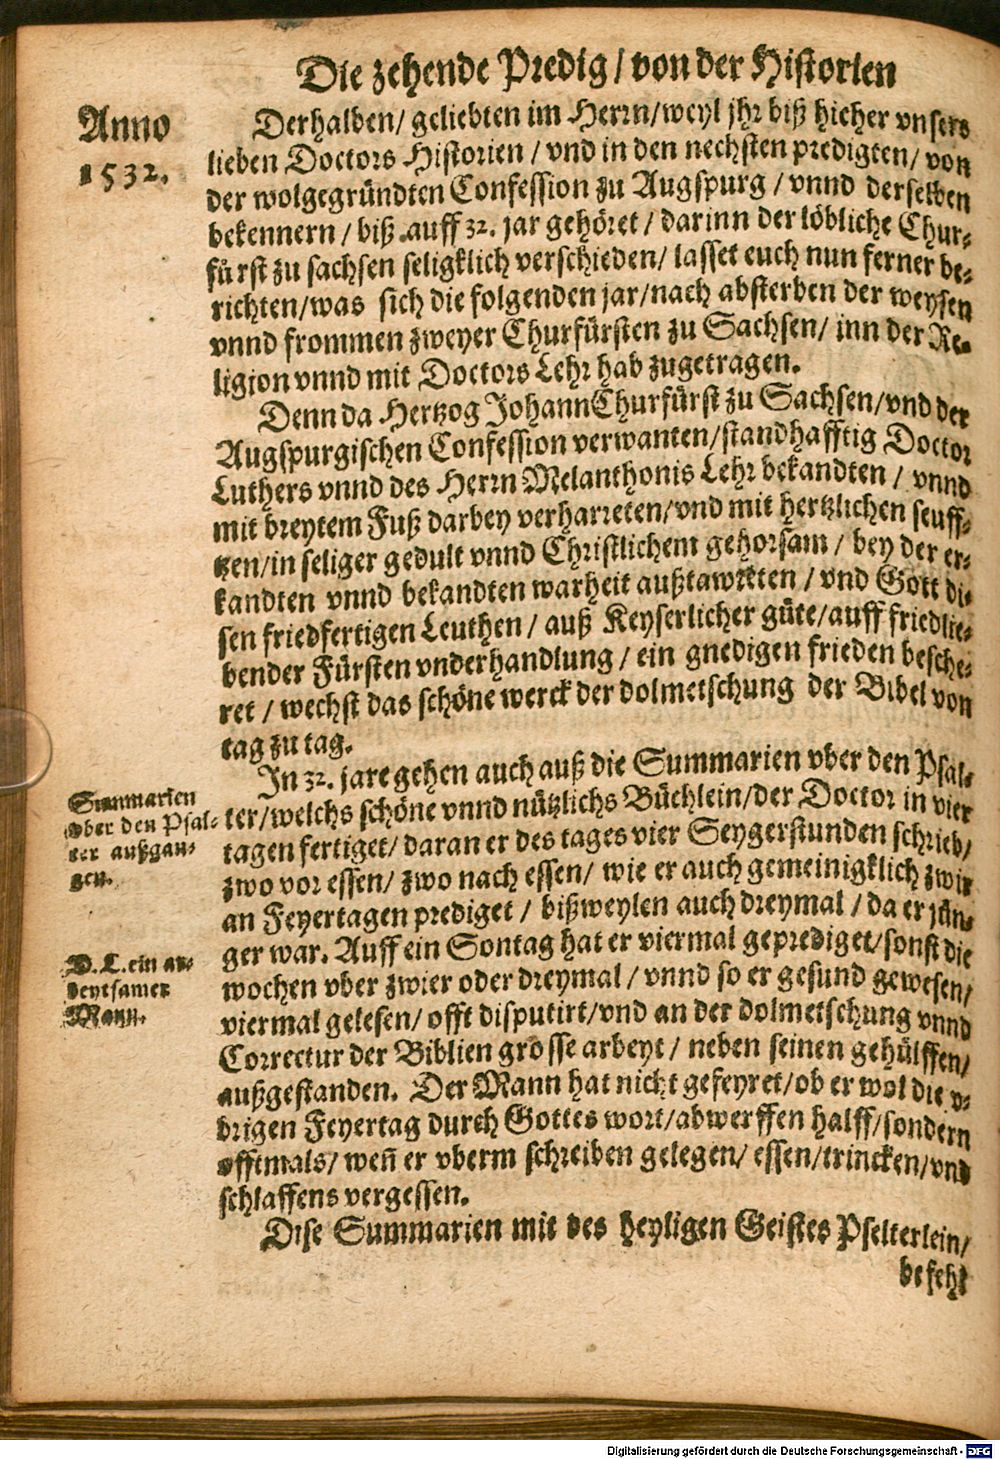 Die zehende Predig / von der Historien
Anno
1532.
Derhalben / geliebten im Herrn / weyl jhr biß hieher vnsers
lieben Doctors Historien / vnd in den nechsten predigten / von
der wolgegründten Confession zu Augspurg / vnnd derselben
bekennern / biß auff 32. jar gehöret / darinn der löbliche Chur-
fürst zu sachsen seligklich verschieden / lasset euch nun ferner be-
richten / was sich die folgenden jar / nach absterben der weysen
vnnd frommen zweyer Churfürsten zu Sachsen / inn der Re-
ligion vnnd mit Doctors Lehr hab zugetragen.
Denn da Hertzog Johann Churfürst zu Sachsen / vnd der
Augspurgischen Confession verwanten / standhafftig Doctor
Luthers vnnd des Herrn Melanthonis Lehr bekandten / vnnd
mit breytem Fuß darbey verharreten / vnd mit hertzlichen seuff-
tzen / in seliger gedult vnnd Christlichem gehorsam / bey der er-
kandten vnnd bekandten warheit außtawrten / vnd Gott di-
sen friedfertigen Leuthen / auß Keyserlicher güte / auff friedlie-
bender Fürsten vnderhandlung / ein gnedigen frieden besche-
ret / wechst das schöne werck der dolmetschung der Bibel von
tag zu tag.
In 32. jare gehen auch auß die Summarien vber den Psal-
ter / welchs schöne vnnd nützlichs Büchlein / der Doctor in vier
tagen fertiget / daran er des tages vier Seygerstunden schrieb /
zwo vor essen / zwo nach essen / wie er auch gemeinigklich zwir
an Feyertagen prediget / bißweylen auch dreymal / da er jün-
ger war. Auff ein Sontag hat er viermal geprediget / sonst die
wochen vber zwier oder dreymal / vnnd so er gesund gewesen /
viermal gelesen / offt disputirt / vnd an der dolmetschung vnnd
Correctur der Biblien grosse arbeyt / neben seinen gehülffen /
außgestanden. Der Mann hat nicht gefeyret / ob er wol die v-
brigen Feyertag durch Gottes wort / abwerffen halff / sondern
offtmals / weñ er vberm schreiben gelegen / essen / trincken / vnd
schlaffens vergessen.
Dise Summarien mit des heyligen Geistes Pselterlein /
befehl
Summarien
vber den Psal-
ter außgan-
gen.
D. L. ein ar-
beytsamer
Mann.
Digitalisierung gefördert durch die Deutsche Forschungsgemeinschaft - DFG